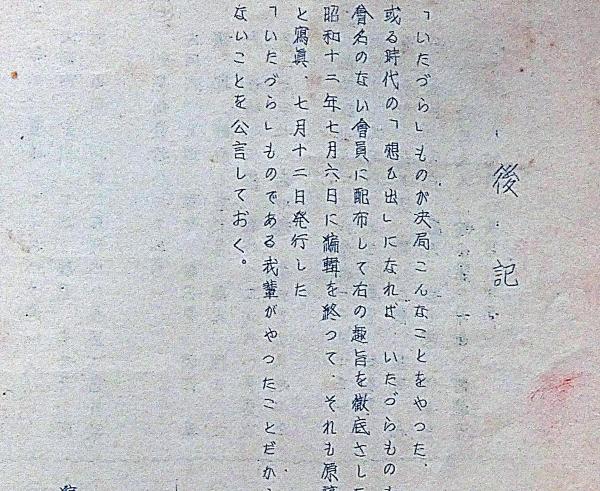 後記
「いたづら」ものが決局こんなことをやった、
或る時代の「想ひ出」になれば、いたづらものも
會名のない會員に配布して右の趣旨を徹底さし
昭和十二年七月六日に編輯を終つて、それも原稿
と寫眞、七月十二日発行した
「いたづら」ものである我輩がやつたことだから
ないことを公言しておく。